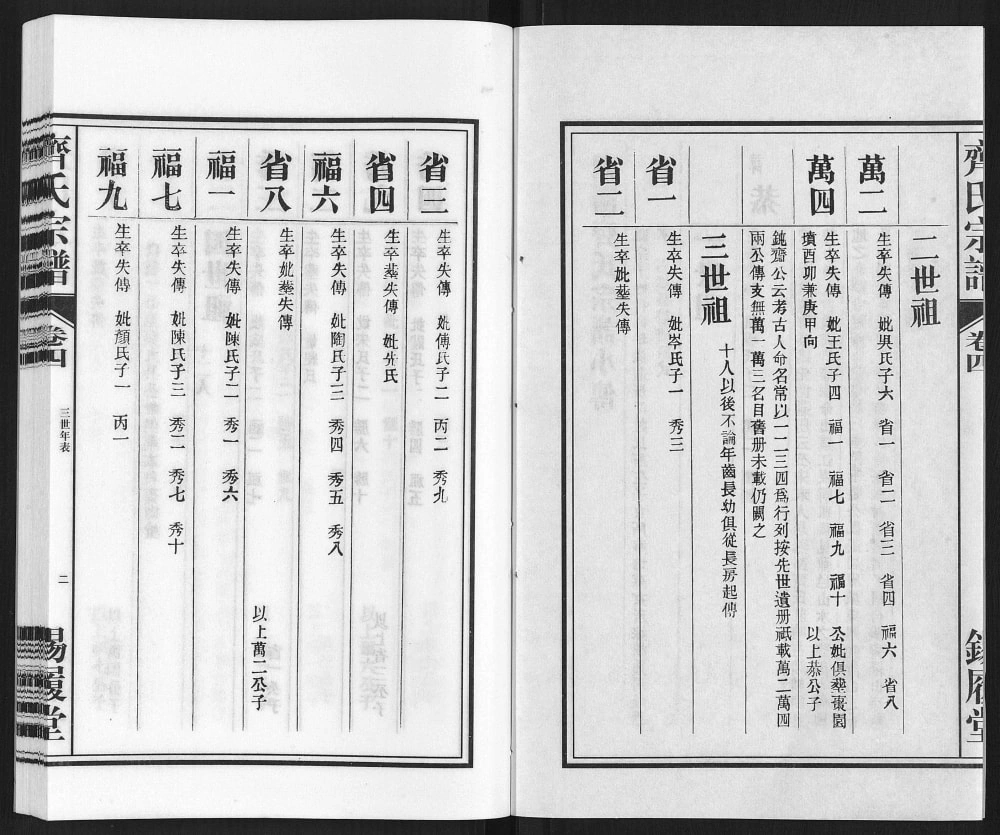 齊氏宗譜
卷四
錫履堂
二世祖
萬二
生卒失傳 妣吳氏子六 省一 省二 省三 省四 福六 省八
萬四
生卒失傳 妣王氏子四 福一 福七 福九 福十 公妣俱塟棗園
墳酉卯兼庚甲向 以上恭公子
鈍齋公云考古人命名常以一二三四爲行列按先世遺册祇載萬二萬四
兩公傳支無萬一萬三名目舊册未載仍闕之
三世祖 十人以後不論年齒長幼俱從長房起傳
省一
生卒失傳 妣岑氏子一 秀三
省二
生卒妣塟失傳
省三
生卒失傳 妣傅氏子二 丙二 秀九
省四
生卒塟失傳 妣先氏
福六
生卒失傳 妣陶氏子三 秀四 秀五 秀八
省八
生卒妣塟失傳 以上萬二公子
福一
生卒失傳 妣陳氏子二 秀一 秀六
福七
生卒失傳 妣陳氏子三 秀二 秀七 秀十
福九
生卒失傳 妣顏氏子一 丙一
齊氏宗譜
卷四
三世年表
二
錫履堂